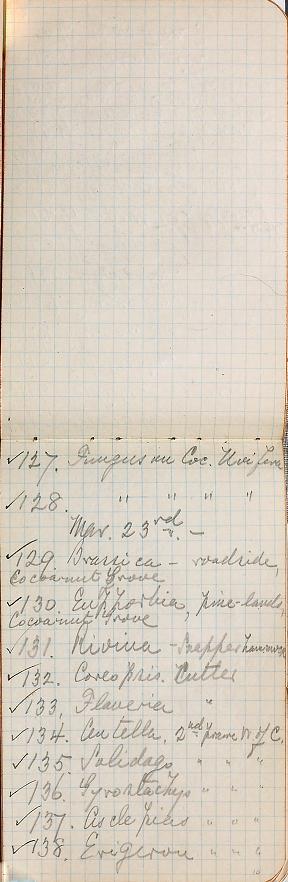 ✓127. Fungus on Coc. Uvifera
✓128. " " " "
Mar. 23rd. –
✓129. Brassica – roadside,
Cocoanut Grove
✓130. Euphorbia, pine-lands,
Cocoanut Grove
✓131. Rivina – Snapper hammock
✓132. Coreopsis. Cutler
✓133, Flaveria "
✓134. Centella, 2nd prairie N. of C.
✓135 Solidago " " "
✓136. Gyrostachys " " "
✓137. Asclepias " " "
✓138. Erigeron " " "